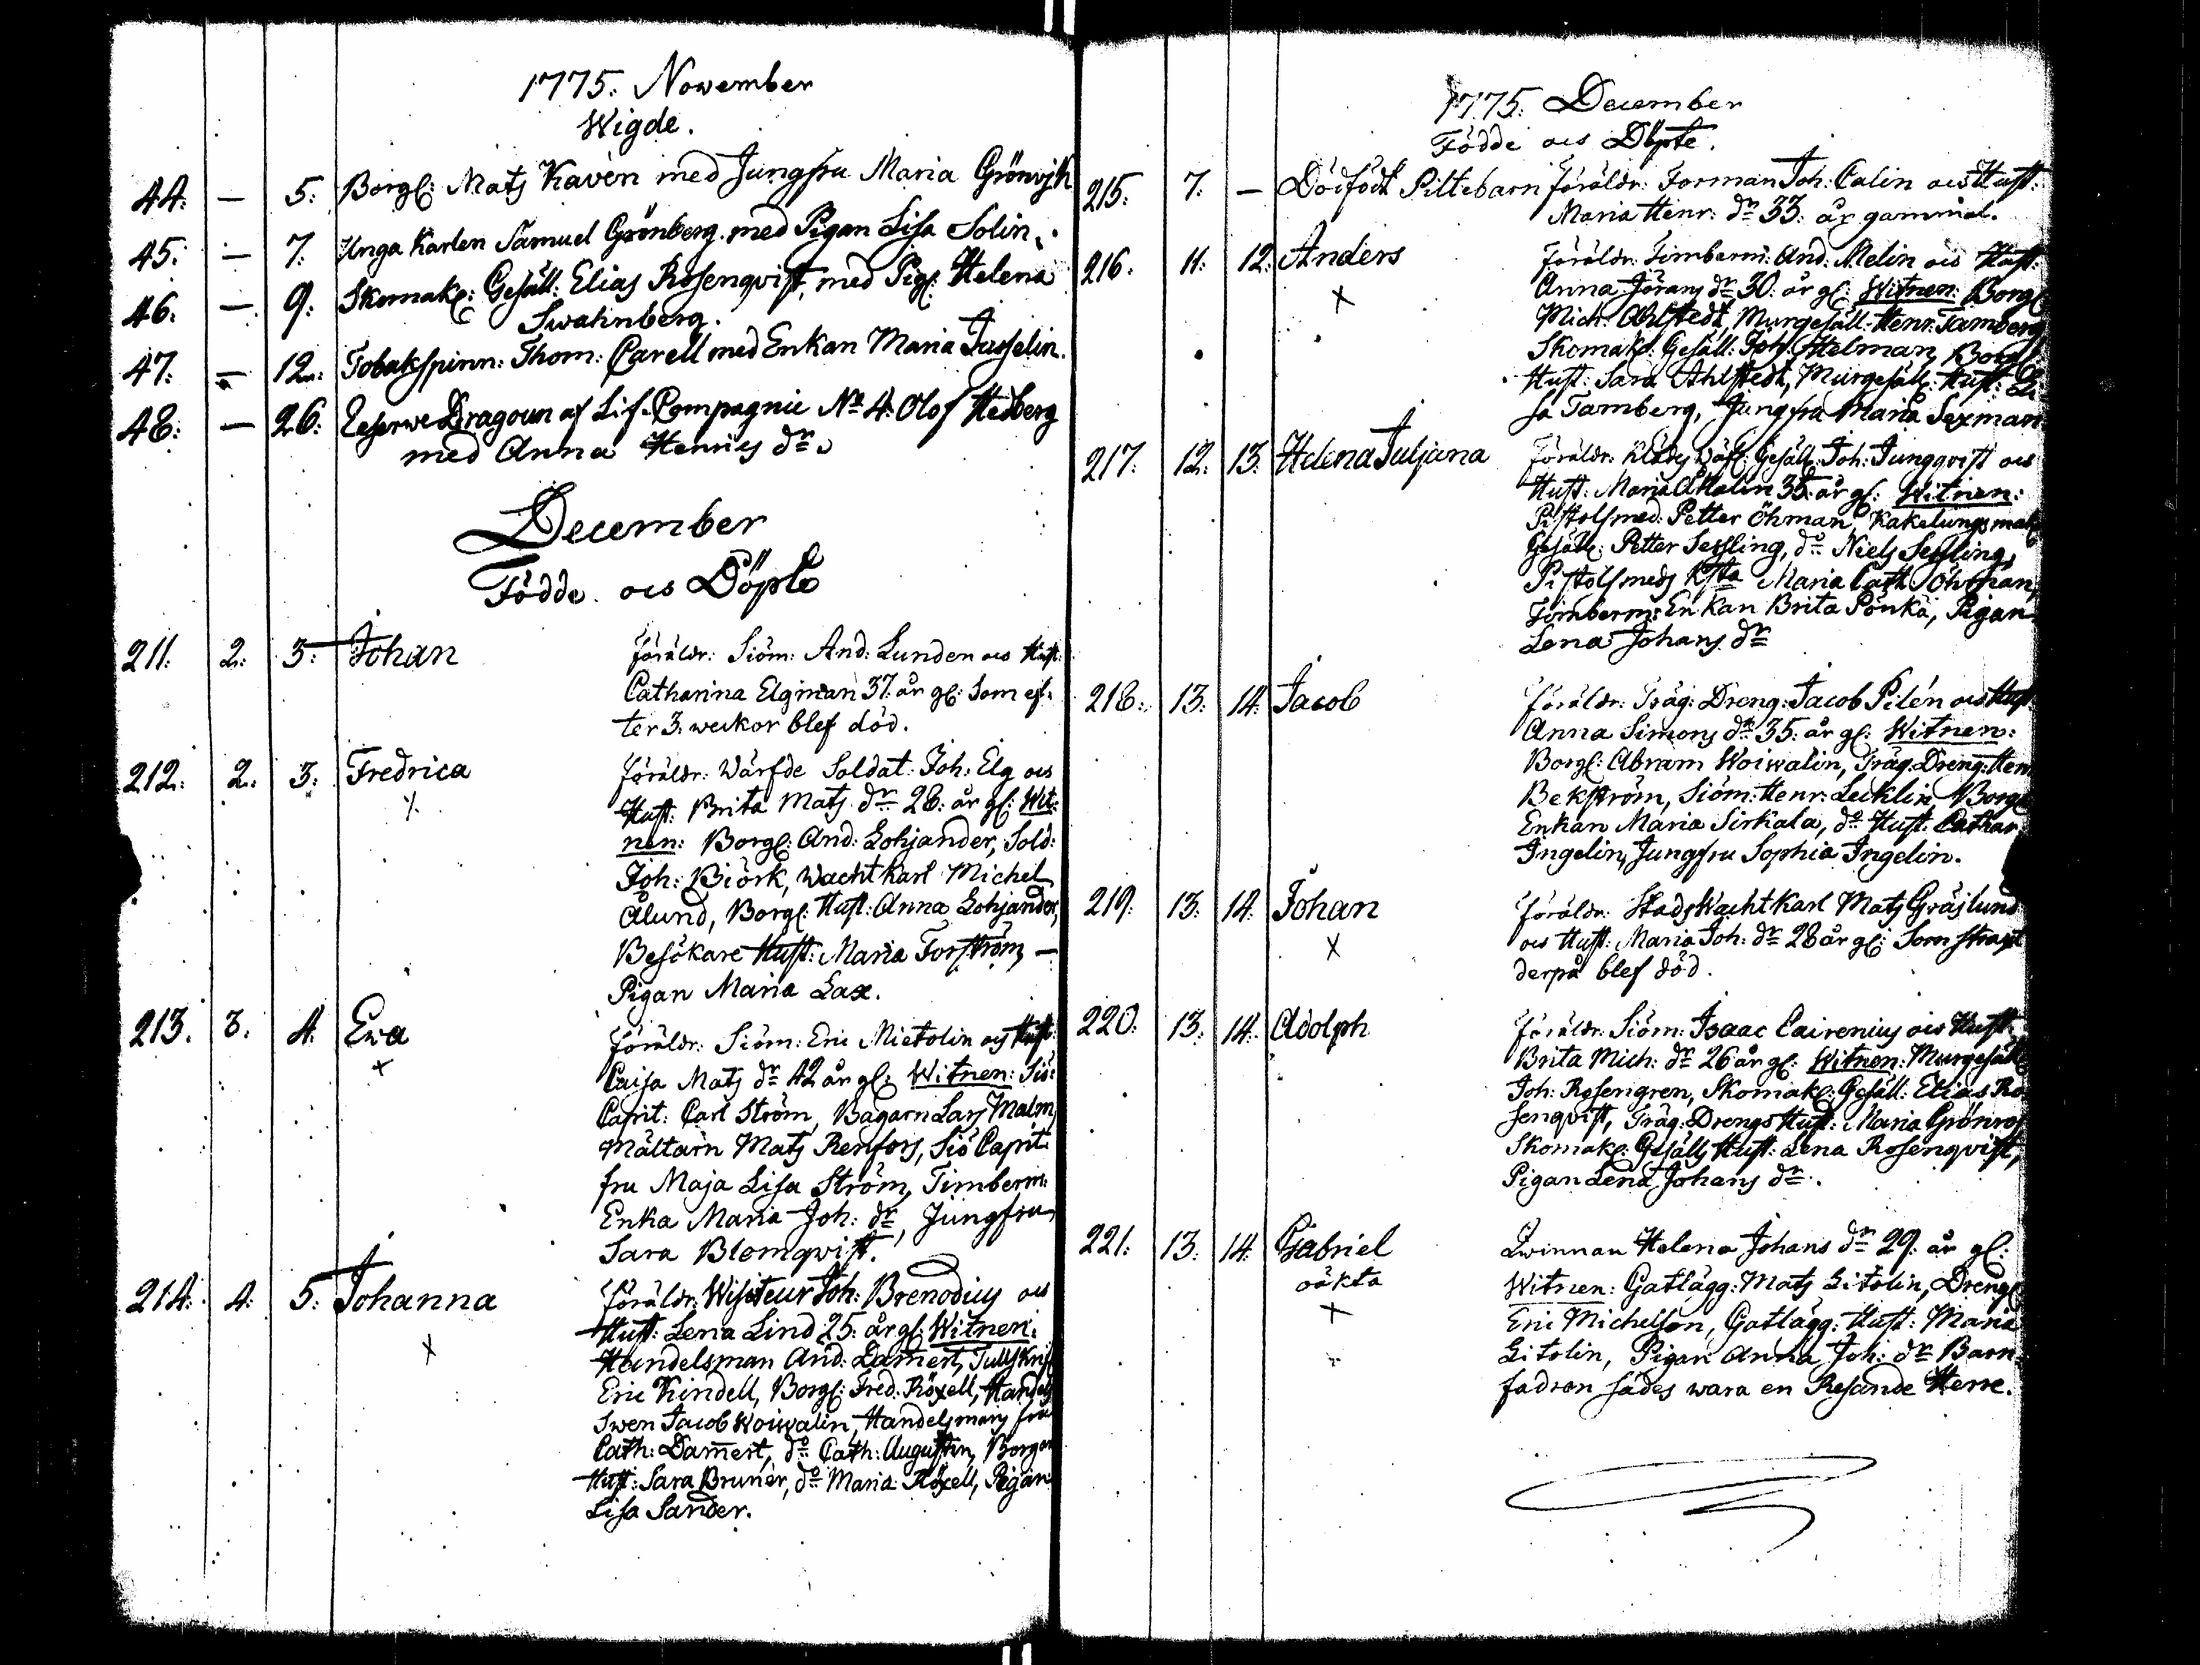 1775. November
Wigde.
44: — 5: Borgl: Mats Kavèn med Jungfru Maria Grönvjk
45: — 7. Unga Karlen Samuel Grönberg. med Pigan Lisa Solin.
46: — 9: Skomak: Gesäll: Elias Rosenqvist, med Pig: Helena
Swahnberg.
47: — 12: Tobakspinn: Thom: Carell med Enkan Maria Jusselin.
48: — 26: Reserwe Dragoun af Lif-Compagnie No 4: Olof Hedberg
med Anna Henrics dr
December
Födde ocs Döpte
211: 2: 3: Johan föräldr: Siöm: And: Lunden ocs Hust:
Catharina Elgman 37. år gl: Som ef-
ter 3. weckor blef död.
212: 2: 3: Fredrica föräldr: Wärfde Soldat: Joh: Elg ocs
X Hust: Brita Mats dr 28: år gl: Wit:
nen: Borgl: And: Lohjander, Sold:
Joh: Biörk, Wacht karl Michel
Ålund, Borgl: Hust: Anna Lohjander,
Besökare Hust: Maria Forström, —
Pigan Maria Lax.
213. 3: 4. Eva föräldr: Siöm: Eric Mietolin ocs Hust:
+ Caisa Mats dr 42 år gl: Witnen: Siö:
Capit: Carl Ström, Bagarn Lars Malm,
Mältarn Mats Renfors, Siö Capit:
fru Maja Lisa Ström, Timberm:
Enka Maria Joh: dr, Jungfru
Sara Blomqwist.
214: 4: 5: Johanna föräldr: Wisiteur Joh: Brenodius ocs
X Hust: Lena Lind 25: år gl: Witnen:
Handelsman And: Damert, Tullskrif
Eric Kindell, Borgl: Fred: Röxell, Handels
Swen Jacob Woiwalin, Handelsmans fru
Cath: Damert, do Cath: Augustin, Borgar
Hust: Sara Brunèr, do Maria Röxell, Pigan
Lisa Sander.
1775. December
Födde ocs Döpte.
215: 7: — Dödfödt Piltebarn föräldr: Forman Joh: Calin ocs Hust:
Maria Henr: dr 33: år gammal.
216: 11: 12: Anders föräldr: Timberm: And: Melin ocs Hust:
X Anna Jörans dr 30: år gl: Witnen: Borgl
Mich: Ahlstedt, Murgesäll: Henr: Tamberg
Skomak: Gesäll: Joh: Helman, Borgl
Hust: Sara Ahlstedt, Murgesäll: Hust: Li
sa Tamberg, Jungfru Maria Sexman
217: 12: 13: Helena Juljana föräldr: Klädes Wäf: Gesäll: Joh: Jungqvist ocs
Hust: Maria Malin 35: år gl: Witnen:
Pistolsmed: Petter Öhman, Kakelungsmak
Gesäll: Petter Sessling, do Niels Sessling,
Pistolsmeds Maria Cath Öhman,
Timberm: Enkan Brita Pönkä, Pigan
Lena Johans dr
218: 13: 14: Jacob föräldr: Träg: Dreng: Jacob Pilén ocs Hust:
Anna Simons dr 35: år gl: Witnen:
Borgl: Abram Woiwalin, Träg: Dreng: Hen
Bekström, Siöm: Henr: Lecklin, Borgl
Enkan Maria Sirkala, do Hust: Cathar
Ingelin, Jungfru Sophia Ingelin.
219: 13: 14: Johan föräldr: Stads Wacht Karl Mats Gräslund
X ocs Hust: Maria Joh: dr 28 år gl: Som straxt
derpå blef död.
220: 13: 14: Adolph föräldr: Siöm: Isaac Cairenius ocs Hust:
Brita Mich: dr 26 år gl: Witnen: Murgesäll
Joh: Rosengren, Skomak: Gesäll: Elias Ro
senqvist, Träg: Drengs Hust: Maria Grönros
Skomak: Gesälls Hust: Lena Rosenqvist,
Pigan Lena Johans dr.
221: 13: 14: Gabriel Qwinnan Helena Johans dr 29: år gl:
oäkta Witnen: Gatlägg: Mats Litolin, Dreng
+ Eric Michelson, Gatlägg: Hust: Maria
Litolin, Pigan Anna Joh: dr Barn
fadron sades wara en Resande Herre.